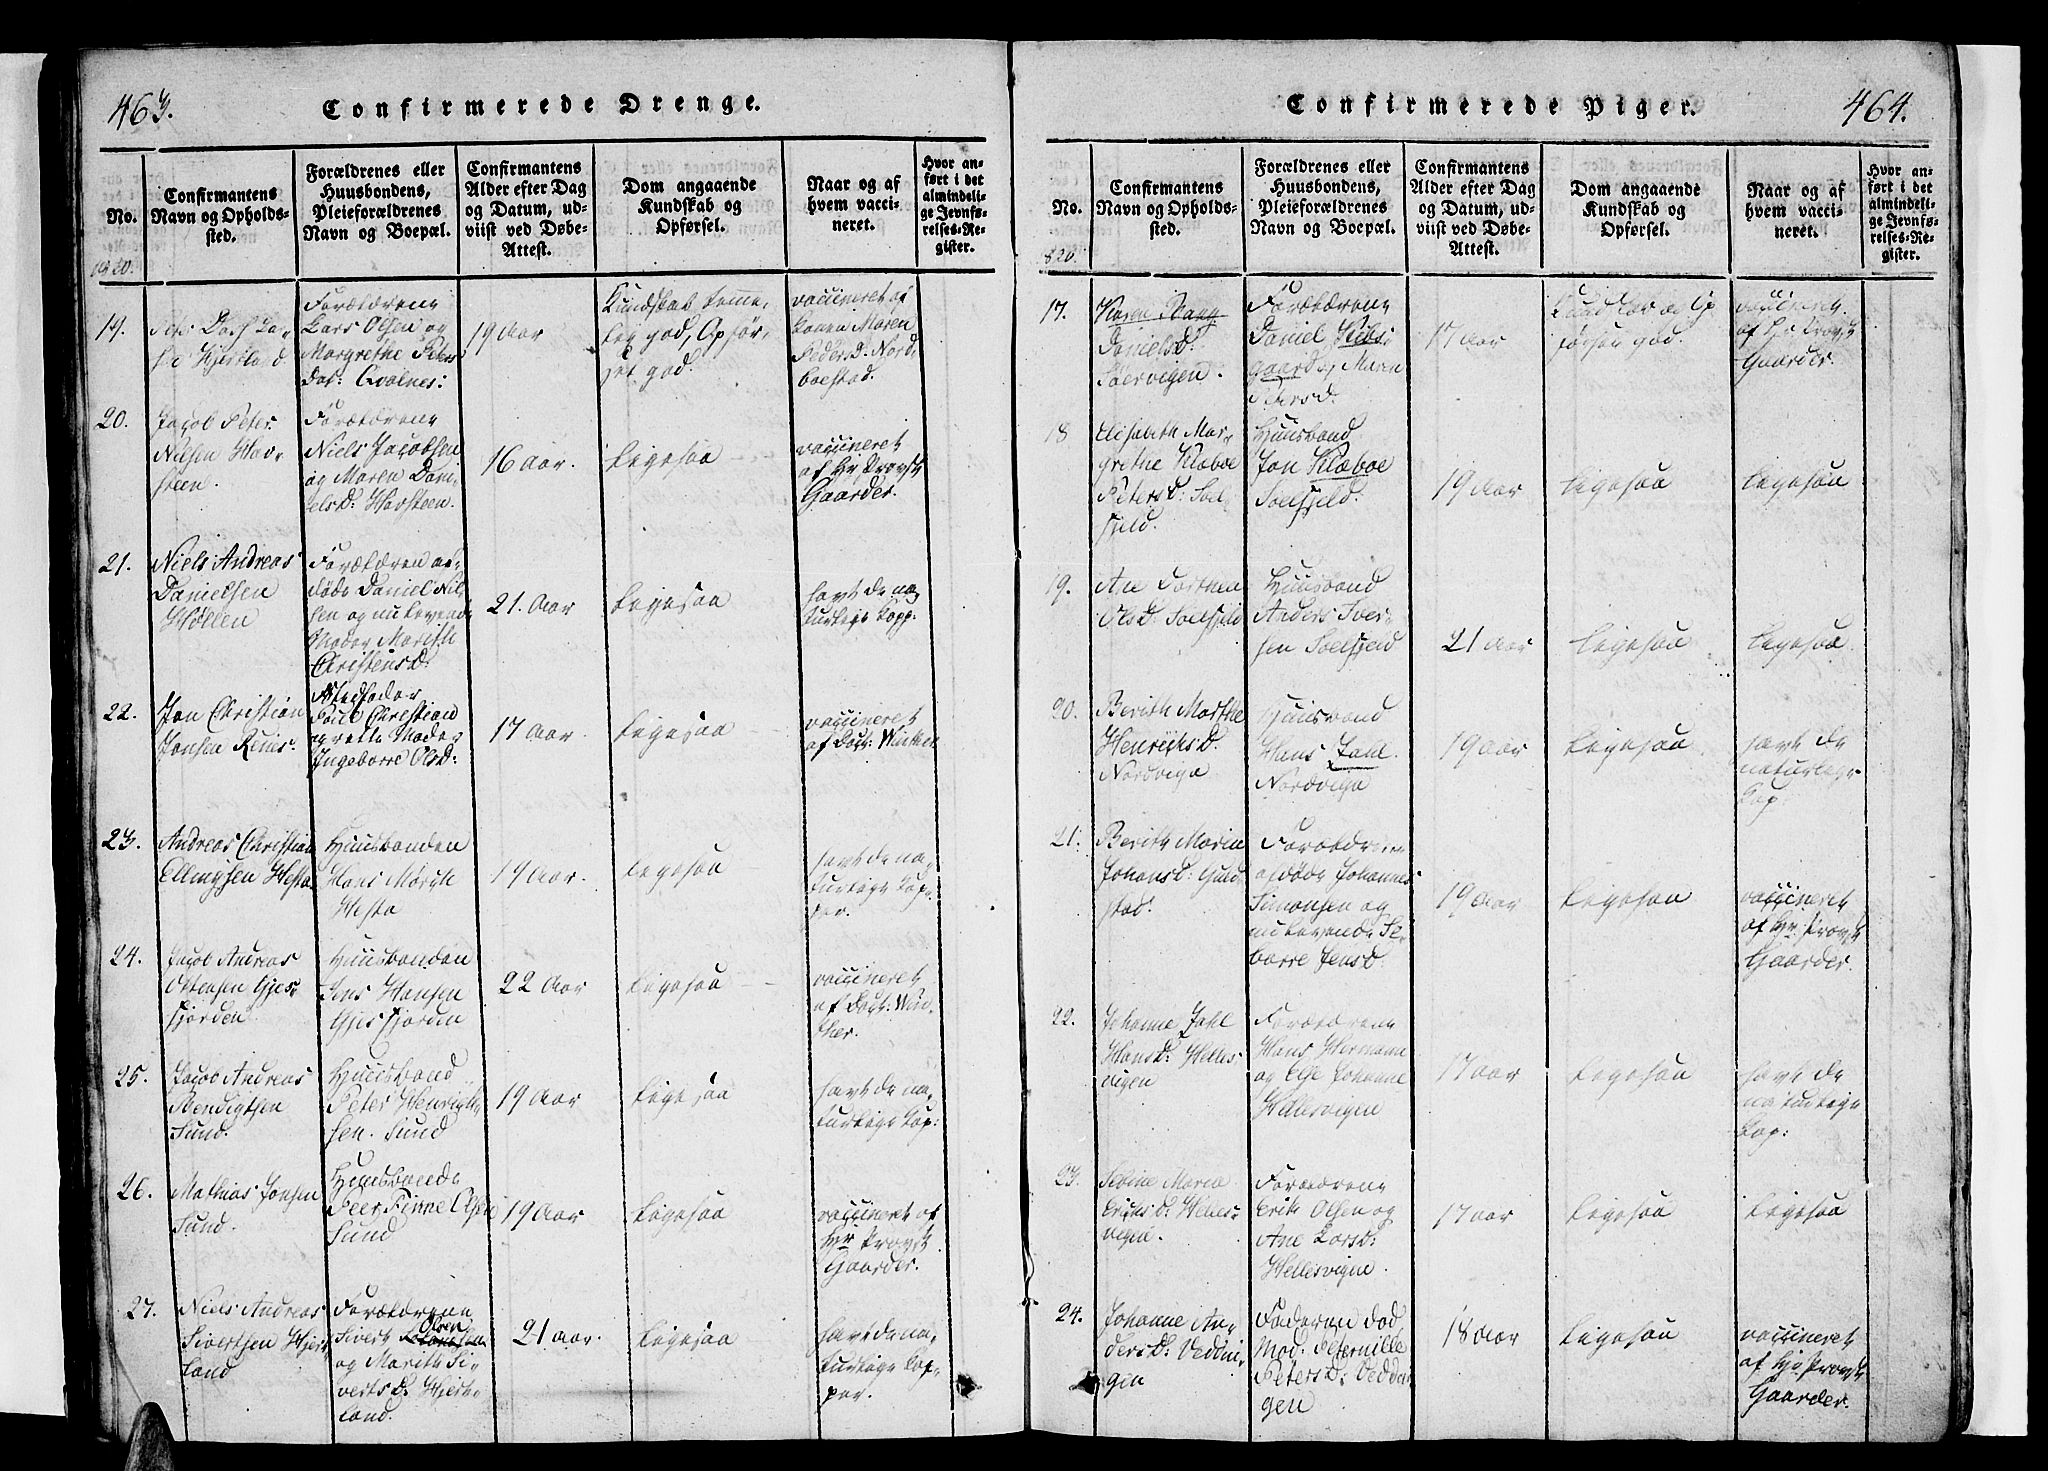 463.
Confirmerede Drenge.
No.
Confirmantens
Navn og Opholds-
sted.
Forældrenes eller
Huusbondens,
Pleieforældrenes
Navn og Boepæl.
Confirmantens
Alder efter Dag
og Datum, ud-
viist ved Døbe-
Attest.
Dom angaaende
Kundskab og
Opførsel.
Naar og af
hvem vacci-
neret.
Hvor an-
ført i det
almindeli-
ge Jevnfø-
relses-Re-
gister.
1820.
19.
Forældrene
Lars Olsen og
Margrethe Peders
Dat: Qvalnes:
19 Aar
Kundskab temme-
lig god, Opfør-
sel god.
vaccineret af
Konen Maren
Pedersd. Nord-
boestad.
20.
Jacob Peter
Nilsen Hav-
steen.
Forældrene
Niels Jacobsen
og Maren Dani-
elsd: Havsteen.
16 Aar.
Ligesaa
vaccineret
af Hr Provst
Gaarder.
21.
Niels Andreas
Danielsen
Forældren af-
døde Daniel Nil-
sen og nulevende
Moder Marith
Christensd:
21. Aar
Ligesaa
havt de na-
turlige Kopp:
22.
Jon Christian
Jonsen Reins:
Stedfader
Poul Christian
og rette Moder
Ingeborre Olsd:
17 Aar.
Ligesaa
vaccineret
af Doct: Winther
23.
Andreas Christian
Ellingsen
Huusbonden
Hans
19 Aar.
Ligesaa
havt de na-
turlige Kop-
per.
24.
Jacob Andreas
Ottensen Gjes-
fjorden
Huusbonden
Jens Hansen
Gjesfjorden
22 Aar
Ligesaa
vaccineret
af Doct: Win-
ther.
25.
Jacob Andreas
Bendigtsen
Sund.
Huusbond
Peter Henrich-
sen. Sund
19 Aar
Ligesaa
havt de na-
turlige Kop:
26.
Mathias Jonsen
Sund.
Huusbonde
Peer Finne Olsen
Sund
19 Aar
Ligesaa
vaccineret af
Hr Provst
Gaarder.
27.
Niels Andreas
Sivertsen Hjert-
land
Forældrene
Sivert Olsen
og Marith Si-
vertsd: Hjert-
land.
21 aar.
Ligesaa
havt de na-
turlige Kop-
per.
464.
Confirmerede Piger.
No.
Confirmantens
Navn og Opholds-
sted.
Forældrenes eller
Huusbondens,
Pleieforældrenes
Navn og Boepæl.
Confirmantens
Alder efter Dag
og Datum, ud-
viist ved Døbe-
Attest.
Dom angaaende
Kundskab og
Opførsel.
Naar og af
hvem vacci-
neret.
Hvor an-
ført i det
almindeli-
ge Jevnfø-
relses-Re-
gister.
820.
17.
Karen
Danielsd:
Sørvigen.
Forældrene
Daniel Kibs-
gaard, Maren
Petersd:
17 aar
Kundskab og Op-
førsel god.
vaccineret
af Hr Provst
Gaarder.
18
Elisabeth Mar-
grethe Klæboe
Petersd: Soel-
fjeld.
Huusbond
Jon Klæboe
Soelfjeld.
19 Aar
Ligesaa
Ligesaa
19.
Ane Dorthea
Olsd: Soelfjeld
Huusbond
Anders Iver-
sen Soelfjeld
21 Aar
Ligesaa
Ligesaa
20.
Berith Marthe
Henrichsd.
Nordvige
Huusbond
Hans
Nordvige
19 aar
Ligesaa
havt de
naturlige
Kop:
21.
Berith Maria
Johansd:
Forældrene
afdøde Johannes
Simonsen og
nulevende
Jensd:
19 aar
Ligesaa
vaccineret
af Hr. Provst
Gaarder.
22.
Johanne
Hansd: Helles-
vigen
Forældrene
Hans
og Else Johanne
Hellesvigen
17 aar
Ligesaa
havt de
naturlige
Kop:
23.
Maria
Ericsd: Helles-
vigen.
Forældrene
Erik Olsen og
Ane Larsd:
Hellesvigen.
17 aar
Ligesaa
Ligesaa
24.
Johanne An-
dersd: Vedvi-
gen
Faderen død
Mod: Petternille
Petersd: Vedvi-
gen
18 aar
Ligesaa
vaccineret
af Hr Provst
Gaarder.